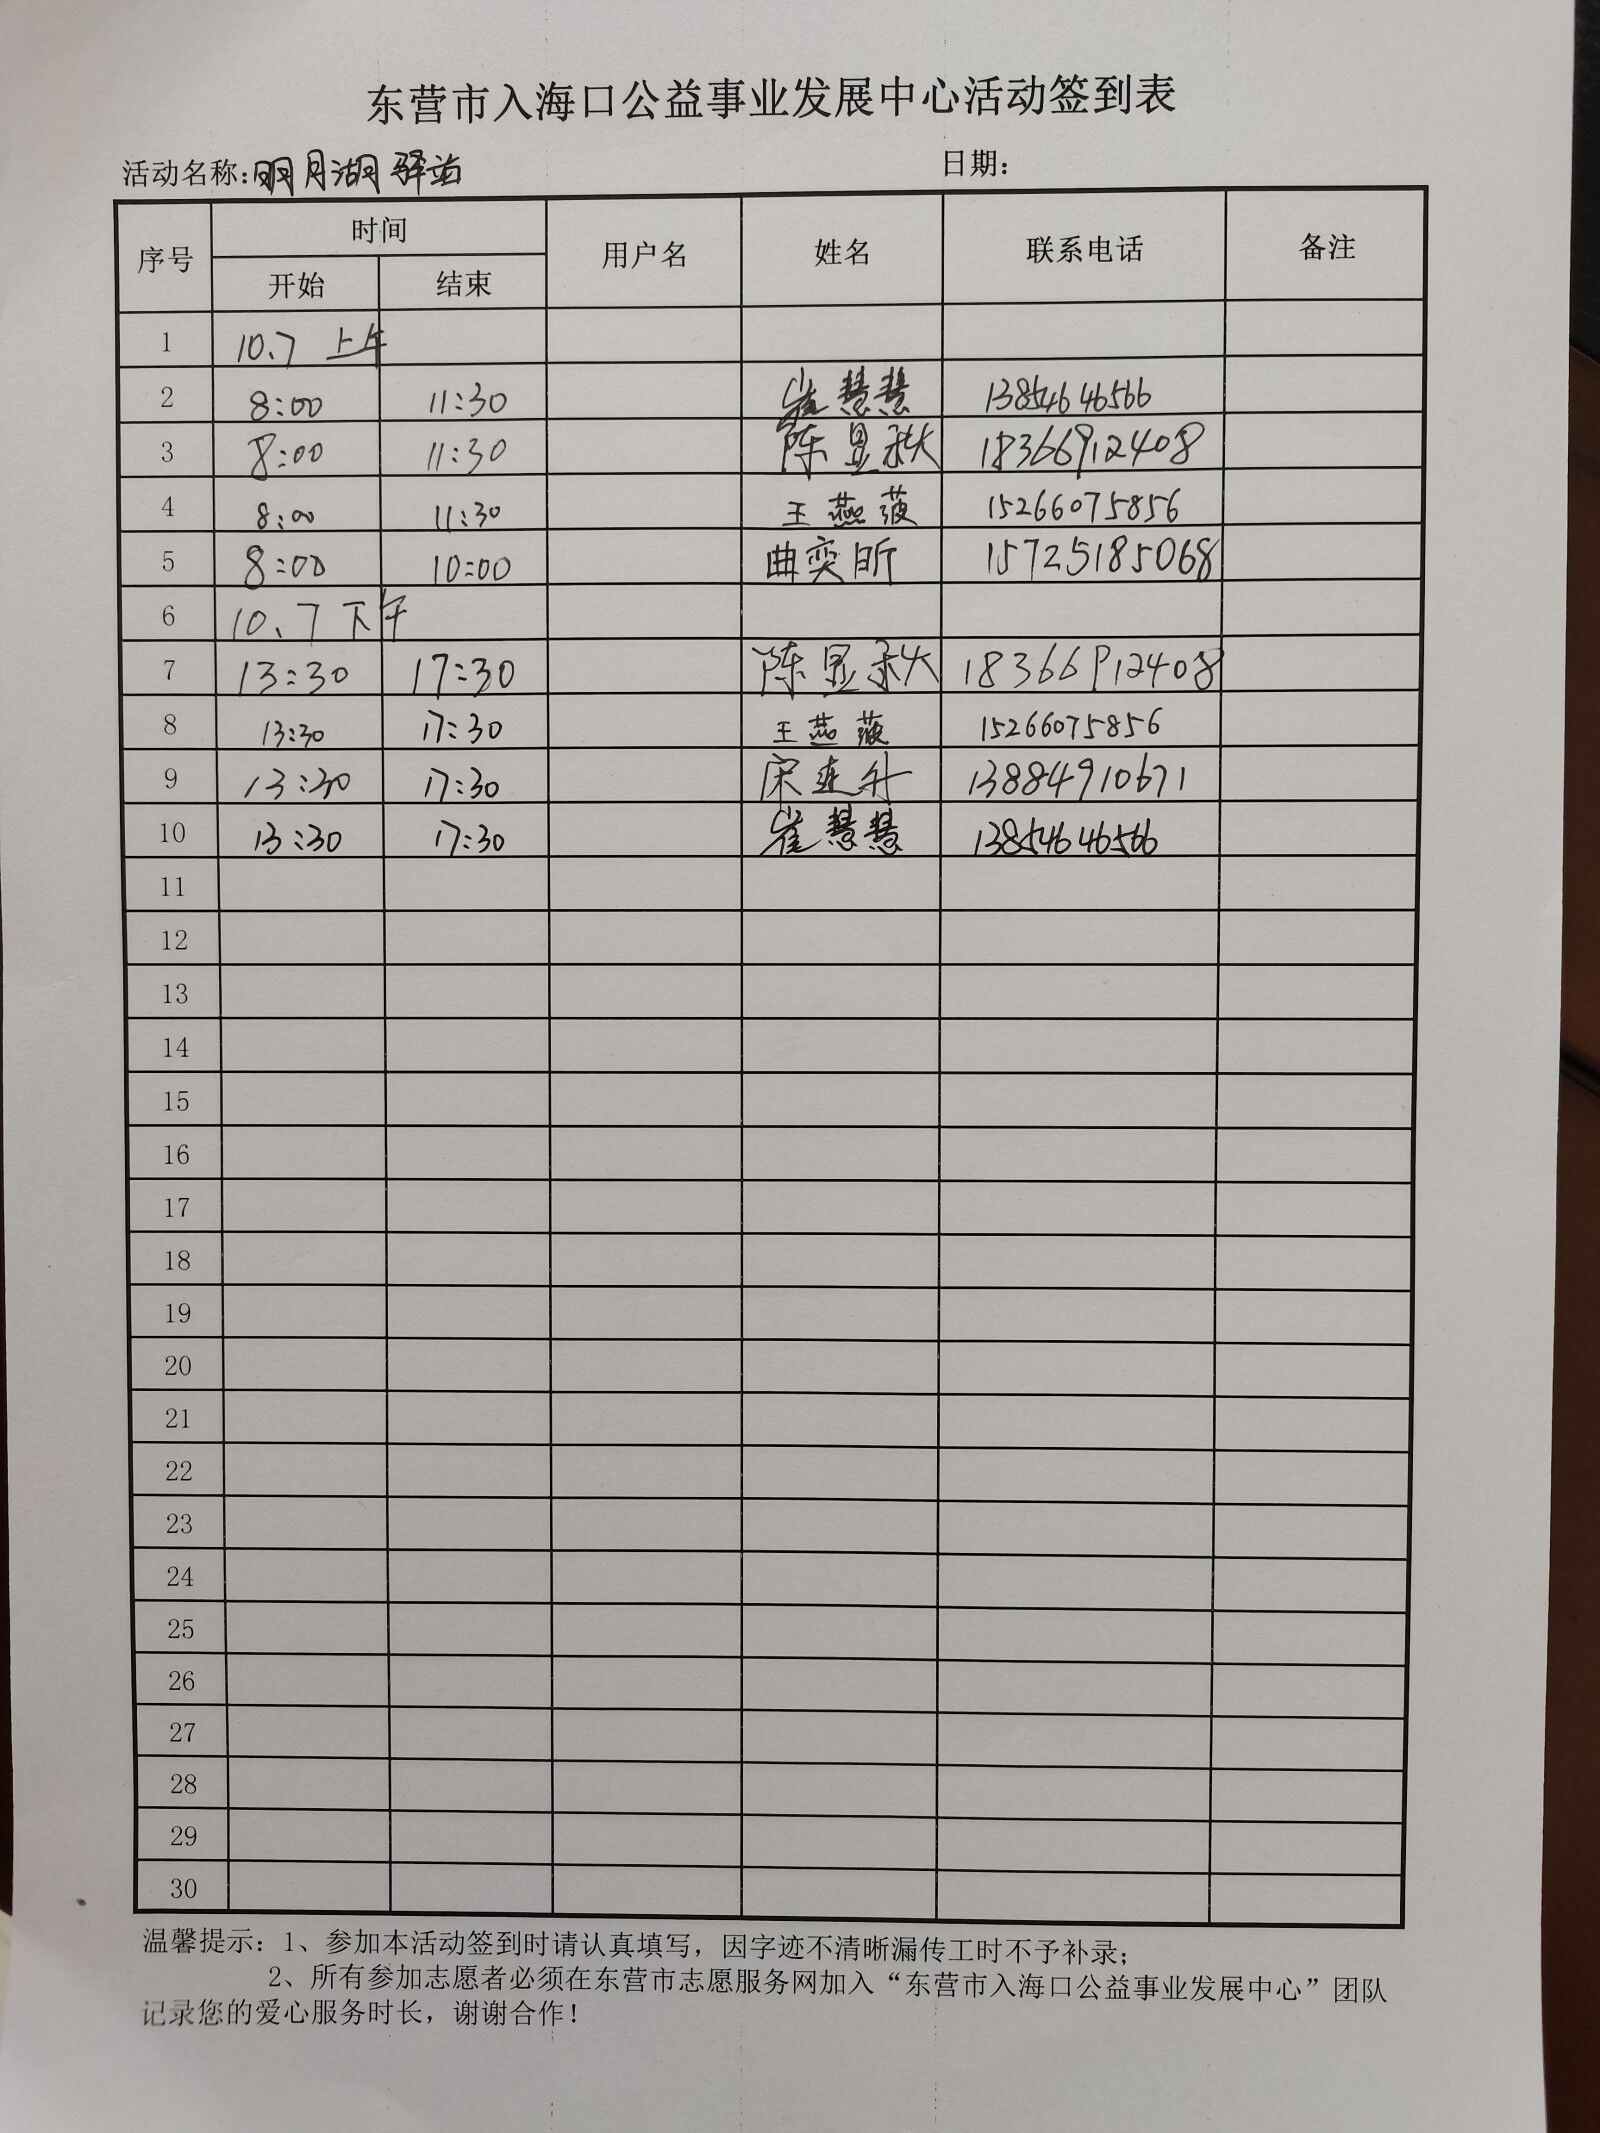 东营市入海口公益事业发展中心活动签到表
活动名称:明月湖驿站 日期:
序号 时间 用户名 姓名 联系电话 备注
开始 结束
1 10.7 上午
2 8:00 11:30 崔慧慧 13854646566
3 8:00 11:30 陈显秋 18366912408
4 8:00 11:30 王燕菠 15266075856
5 8:00 10:00 曲奕昕 15725185068
6 10.7 下午
7 13:30 17:30 陈显秋 18366912408
8 13:30 17:30 王燕菠 15266075856
9 13:30 17:30 宋连升 13884910671
10 13:30 17:30 崔慧慧 13854646566
11
12
13
14
15
16
17
18
19
20
21
22
23
24
25
26
27
28
29
30
温馨提示：1、参加本活动签到时请认真填写，因字迹不清晰漏传工时不予补录；
2、所有参加志愿者必须在东营市志愿服务网加入“东营市入海口公益事业发展中心”团队
记录您的爱心服务时长，谢谢合作！